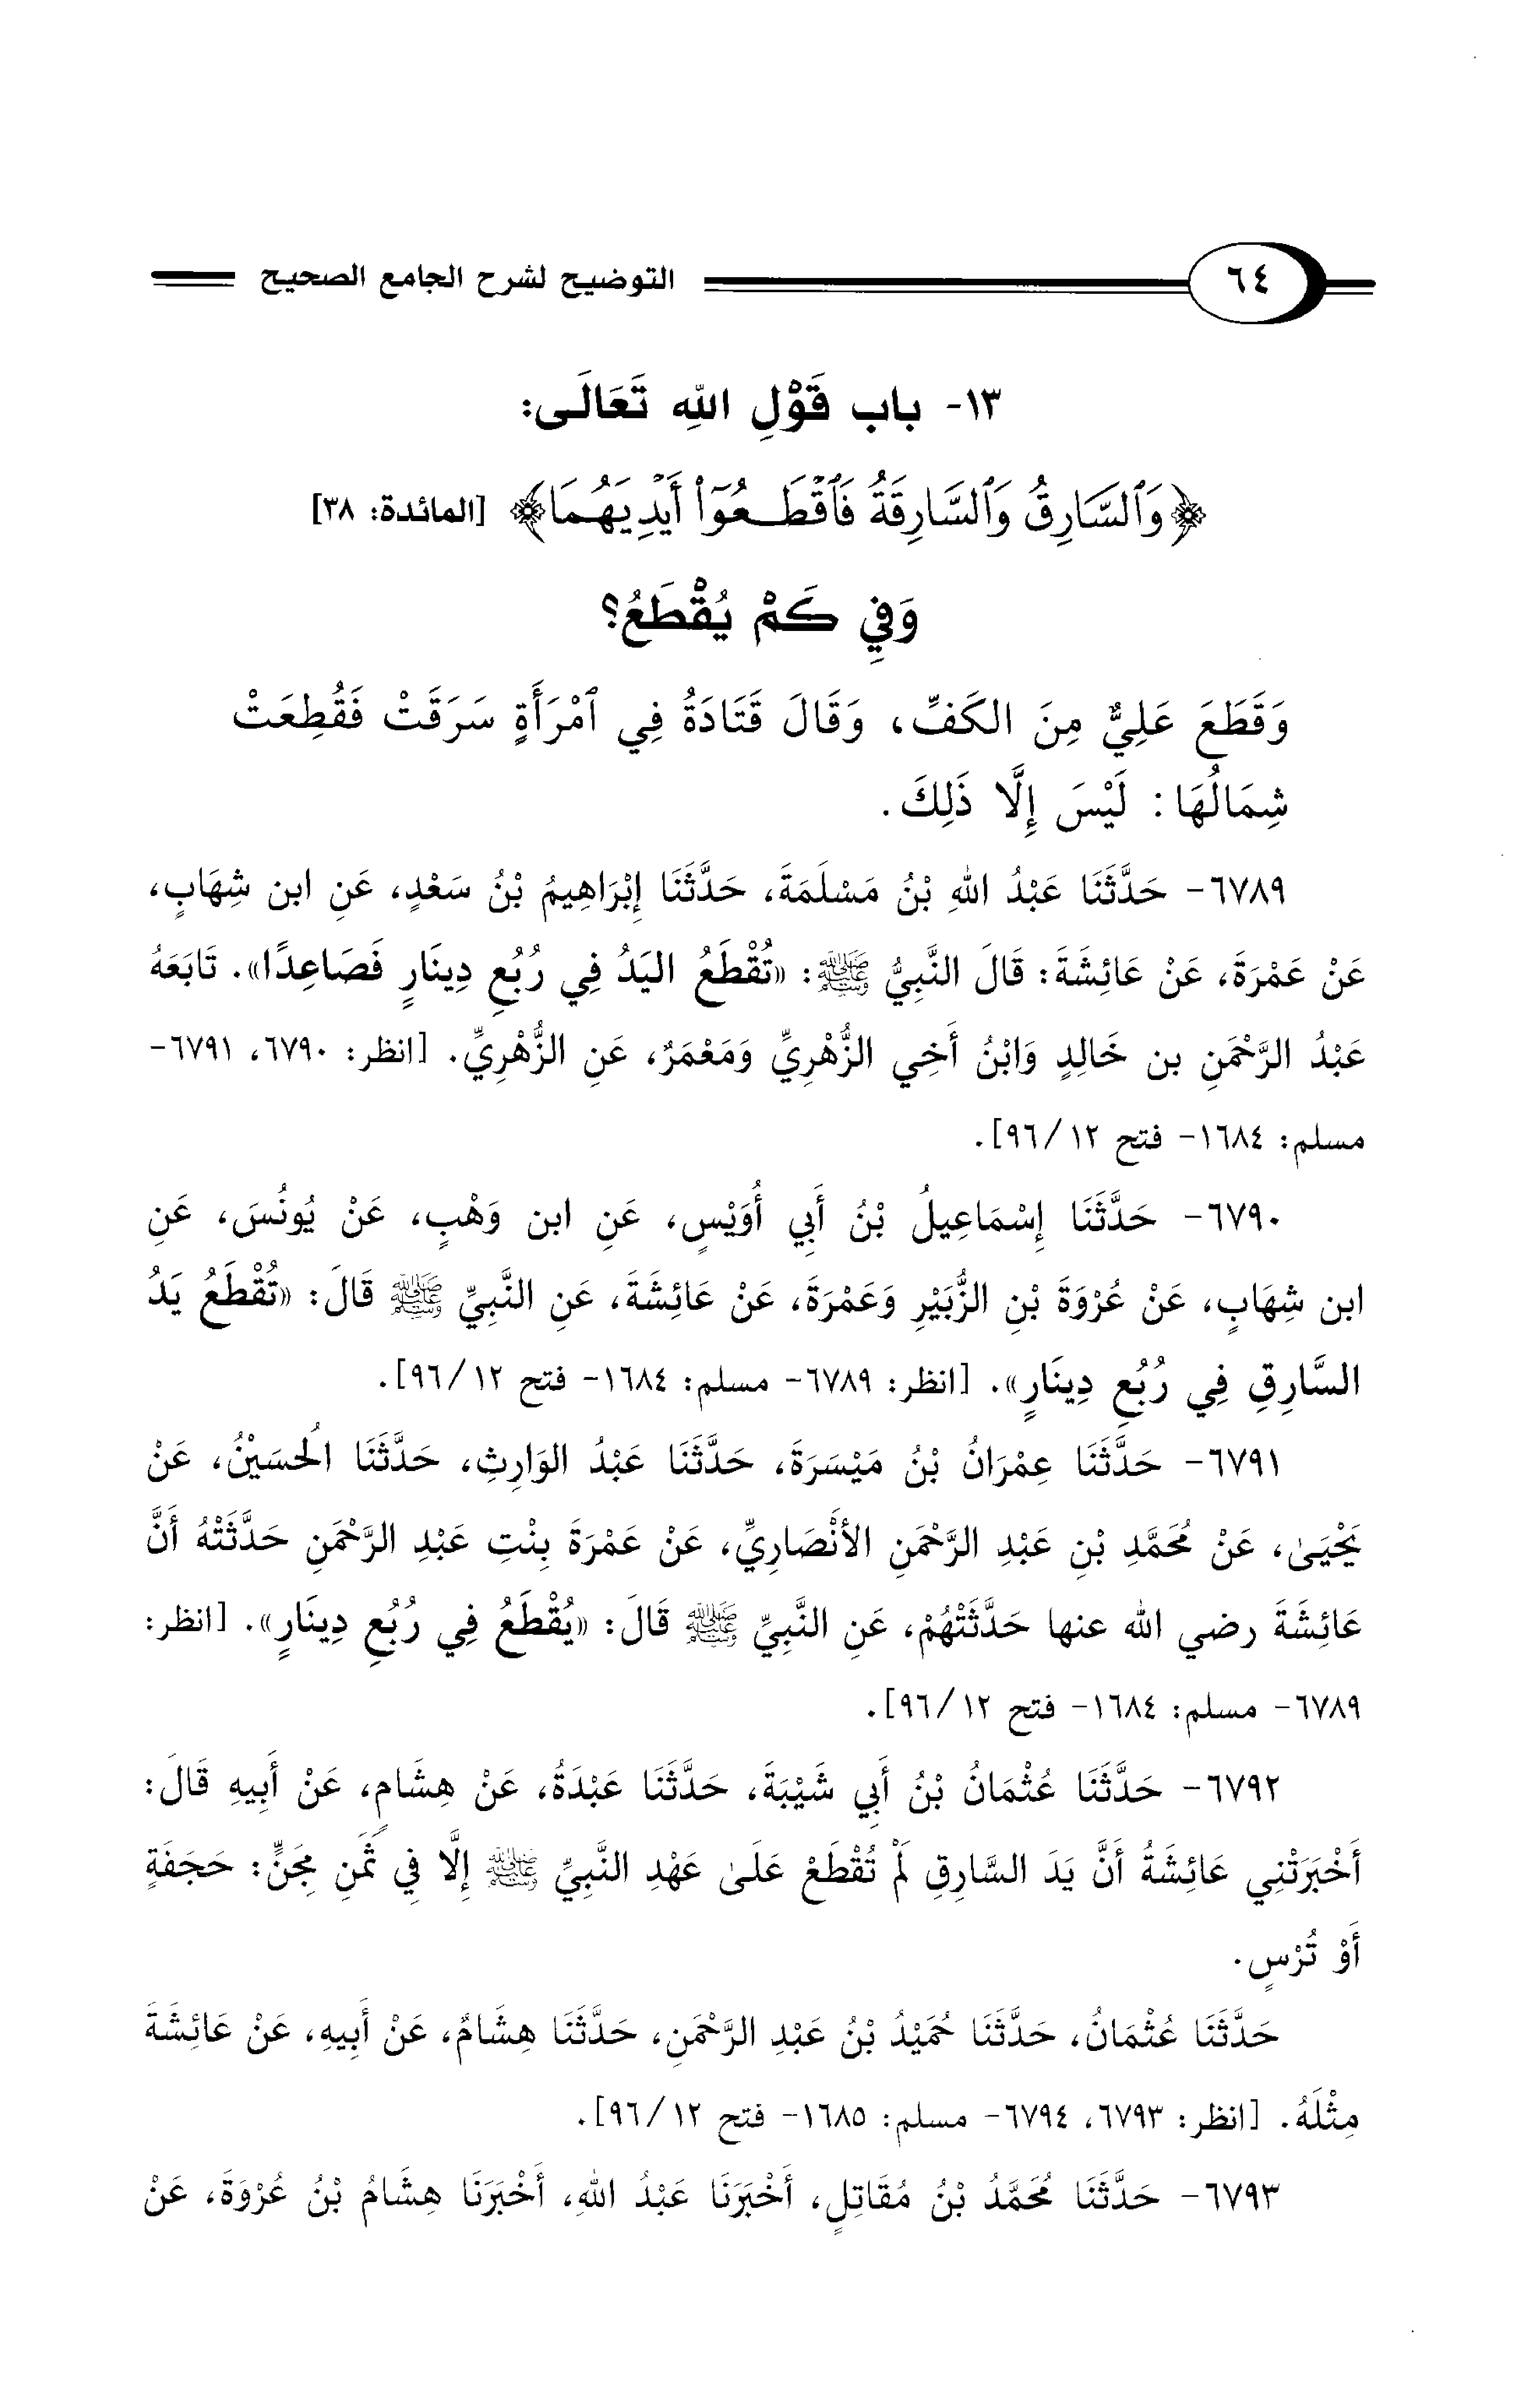 ٦٤ التوضيح لشرح الجامع الصحيح
١٣- باب قَوْلِ اللهِ تَعَالَى:
﴿وَٱلسَّارِقُ وَٱلسَّارِقَةُ فَٱقْطَعُوٓا۟ أَيْدِيَهُمَا﴾ [المائدة: ٣٨]
وَفِي كَمْ يُقْطَعُ؟
وَقَطَعَ عَلِيٌّ مِنَ الكَفِّ، وَقَالَ قَتَادَةُ فِي ٱمْرَأَةٍ سَرَقَتْ فَقُطِعَتْ
شِمَالُهَا: لَيْسَ إِلَّا ذَلِكَ.
٦٧٨٩- حَدَّثَنَا عَبْدُ اللهِ بْنُ مَسْلَمَةَ، حَدَّثَنَا إِبْرَاهِيمُ بْنُ سَعْدٍ، عَنِ ابن شِهَابٍ،
عَنْ عَمْرَةَ، عَنْ عَائِشَةَ: قَالَ النَّبِيُّ ﷺ: «تُقْطَعُ اليَدُ فِي رُبُعِ دِينَارٍ فَصَاعِدًا». تَابَعَهُ
عَبْدُ الرَّحْمَنِ بن خَالِدٍ وَابْنُ أَخِي الزُّهْرِيِّ وَمَعْمَرٌ، عَنِ الزُّهْرِيِّ. [انظر: ٦٧٩٠، ٦٧٩١-
مسلم: ١٦٨٤- فتح ١٢/ ٩٦].
٦٧٩٠- حَدَّثَنَا إِسْمَاعِيلُ بْنُ أَبِي أُوَيْسٍ، عَنِ ابن وَهْبٍ، عَنْ يُونُسَ، عَنِ
ابن شِهَابٍ، عَنْ عُرْوَةَ بْنِ الزُّبَيْرِ وَعَمْرَةَ، عَنْ عَائِشَةَ، عَنِ النَّبِيِّ ﷺ قَالَ: «تُقْطَعُ يَدُ
السَّارِقِ فِي رُبُعِ دِينَارٍ». [انظر: ٦٧٨٩- مسلم: ١٦٨٤- فتح ١٢/ ٩٦].
٦٧٩١- حَدَّثَنَا عِمْرَانُ بْنُ مَيْسَرَةَ، حَدَّثَنَا عَبْدُ الوَارِثِ، حَدَّثَنَا الُحسَيْنُ، عَنْ
يَحْيَىٰ، عَنْ مُحَمَّدِ بْنِ عَبْدِ الرَّحْمَنِ الأَنْصَارِيِّ، عَنْ عَمْرَةَ بِنْتِ عَبْدِ الرَّحْمَنِ حَدَّثَتْهُ أَنَّ
عَائِشَةَ رضي الله عنها حَدَّثَتْهُمْ، عَنِ النَّبِيِّ ﷺ قَالَ: «يُقْطَعُ فِي رُبُعِ دِينَارٍ». [انظر:
٦٧٨٩- مسلم: ١٦٨٤- فتح ١٢/ ٩٦].
٦٧٩٢- حَدَّثَنَا عُثْمَانُ بْنُ أَبِي شَيْبَةَ، حَدَّثَنَا عَبْدَةُ، عَنْ هِشَامٍ، عَنْ أَبِيهِ قَالَ:
أَخْبَرَتْنِي عَائِشَةُ أَنَّ يَدَ السَّارِقِ لَمْ تُقْطَعْ عَلَىٰ عَهْدِ النَّبِيِّ ﷺ إِلَّا فِي ثَمَنِ مِجَنٍّ: حَجَفَةٍ
أَوْ تُرْسٍ.
حَدَّثَنَا عُثْمَانُ، حَدَّثَنَا حُمَيْدُ بْنُ عَبْدِ الرَّحْمَنِ، حَدَّثَنَا هِشَامٌ، عَنْ أَبِيهِ، عَنْ عَائِشَةَ
مِثْلَهُ. [انظر: ٦٧٩٣، ٦٧٩٤- مسلم: ١٦٨٥- فتح ١٢/ ٩٦].
٦٧٩٣- حَدَّثَنَا مُحَمَّدُ بْنُ مُقَاتِلٍ، أَخْبَرَنَا عَبْدُ اللهِ، أَخْبَرَنَا هِشَامُ بْنُ عُرْوَةَ، عَنْ